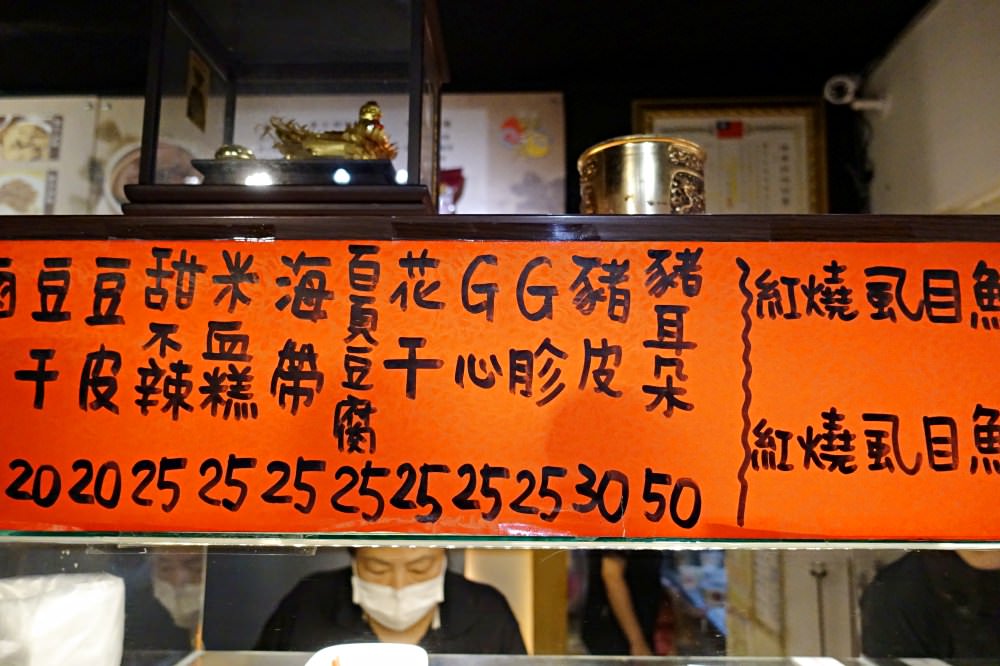 豆干 20
豆皮 20
甜不辣 25
米血糕 25
海帶 25
百頁豆腐 25
花干 25
G心 25
G胗 25
豬皮 30
豬耳朵 50
紅燒虱目魚
紅燒虱目魚